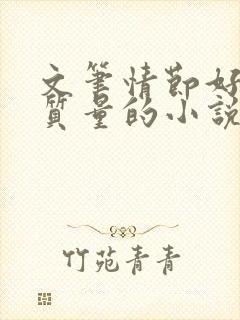 文筆情節好
質量的小說
竹苑青青